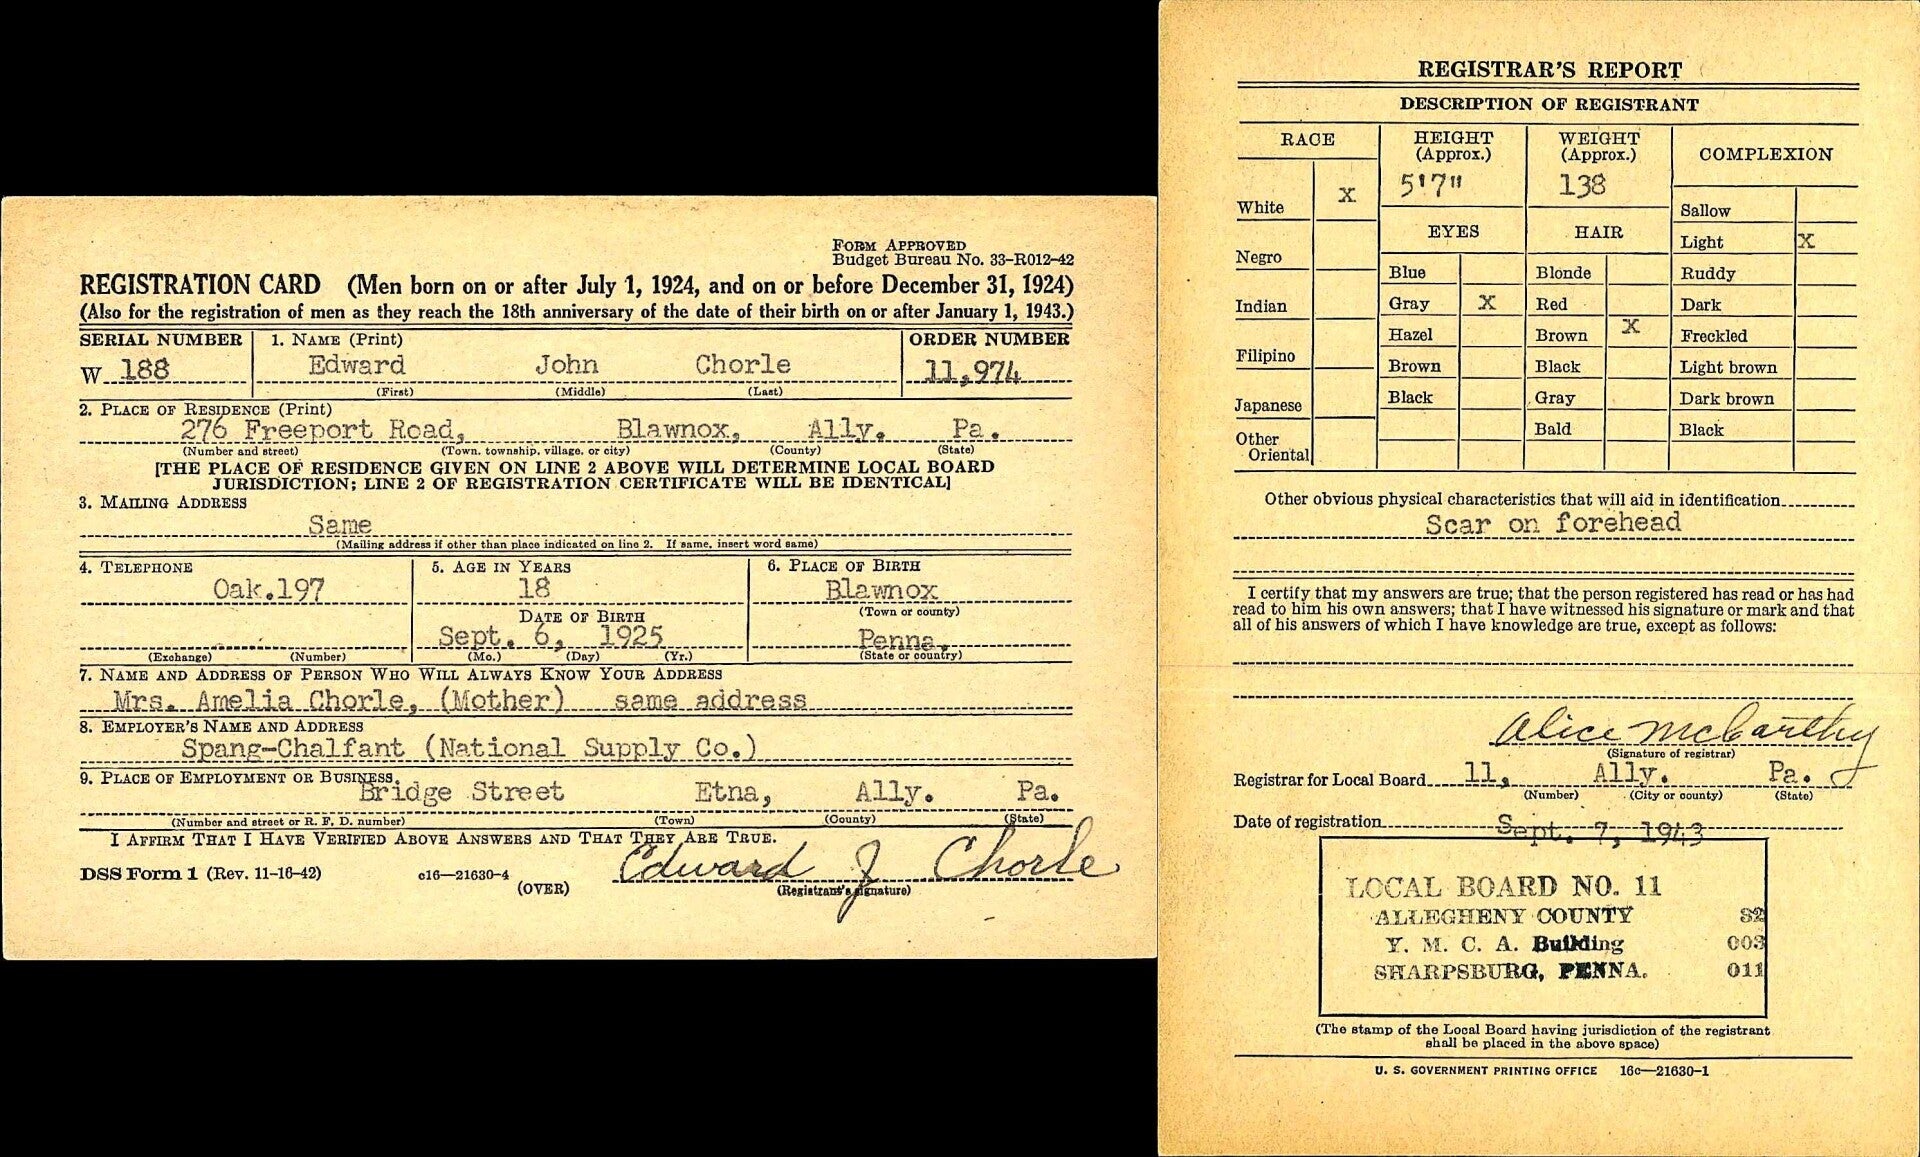 FORM APPROVED
Budget Bureau No. 33-R012-42
REGISTRATION CARD (Men born on or after July 1, 1924, and on or before December 31, 1924)
(Also for the registration of men as they reach the 18th anniversary of the date of their birth on or after January 1, 1943.)
SERIAL NUMBER 1. NAME (Print) ORDER NUMBER
W 188 Edward John Chorle 11,974
(First) (Middle) (Last)
2. PLACE OF RESIDENCE (Print)
276 Freeport Road, Blawnox, Ally. Pa.
(Number and street) (Town, township, village, or city) (County) (State)
[THE PLACE OF RESIDENCE GIVEN ON LINE 2 ABOVE WILL DETERMINE LOCAL BOARD
JURISDICTION; LINE 2 OF REGISTRATION CERTIFICATE WILL BE IDENTICAL]
3. MAILING ADDRESS
Same
(Mailing address if other than place indicated on line 2. If same, insert word same)
4. TELEPHONE 5. AGE IN YEARS 6. PLACE OF BIRTH
Oak.197 18 Blawnox
(Town or county)
DATE OF BIRTH
Sept. 6, 1925 Penna.
(Exchange) (Number) (Mo.) (Day) (Yr.) (State or country)
7. NAME AND ADDRESS OF PERSON WHO WILL ALWAYS KNOW YOUR ADDRESS
Mrs. Amelia Chorle, (Mother) same address
8. EMPLOYER'S NAME AND ADDRESS
Spang-Chalfant (National Supply Co.)
9. PLACE OF EMPLOYMENT OR BUSINESS
Bridge Street Etna, Ally. Pa.
(Number and street or R. F. D. number) (Town) (County) (State)
I AFFIRM THAT I HAVE VERIFIED ABOVE ANSWERS AND THAT THEY ARE TRUE.
DSS Form 1 (Rev. 11-16-42) c16—21630-4 (OVER) Edward J Chorle
(Registrant's signature)
REGISTRAR'S REPORT
DESCRIPTION OF REGISTRANT
RACE HEIGHT (Approx.) WEIGHT (Approx.) COMPLEXION
5'7" 138
White X
EYES HAIR Sallow
Light X
Negro Blue Blonde Ruddy
Indian Gray X Red Dark
Hazel Brown X Freckled
Filipino Brown Black Light brown
Japanese Black Gray Dark brown
Other Oriental Bald Black
Other obvious physical characteristics that will aid in identification
Scar on forehead
I certify that my answers are true; that the person registered has read or has had
read to him his own answers; that I have witnessed his signature or mark and that
all of his answers of which I have knowledge are true, except as follows:
Alice McCarthy
(Signature of registrar)
Registrar for Local Board 11, Ally. Pa.
(Number) (City or county) (State)
Date of registration Sept. 7, 1943
LOCAL BOARD NO. 11
ALLEGHENY COUNTY 82
Y. M. C. A. Building 003
SHARPSBURG, PENNA. 011
(The stamp of the Local Board having jurisdiction of the registrant
shall be placed in the above space)
U. S. GOVERNMENT PRINTING OFFICE 16c—21630-1